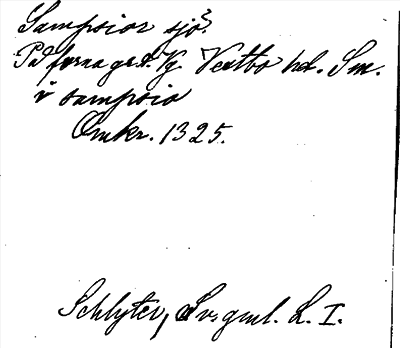 Sampsior sjö?
På forna gr. t. Kj Vestbo hd. Sm.
i sampsio
Omkr. 1325.
Schlyter, Sv. gml. L. I.